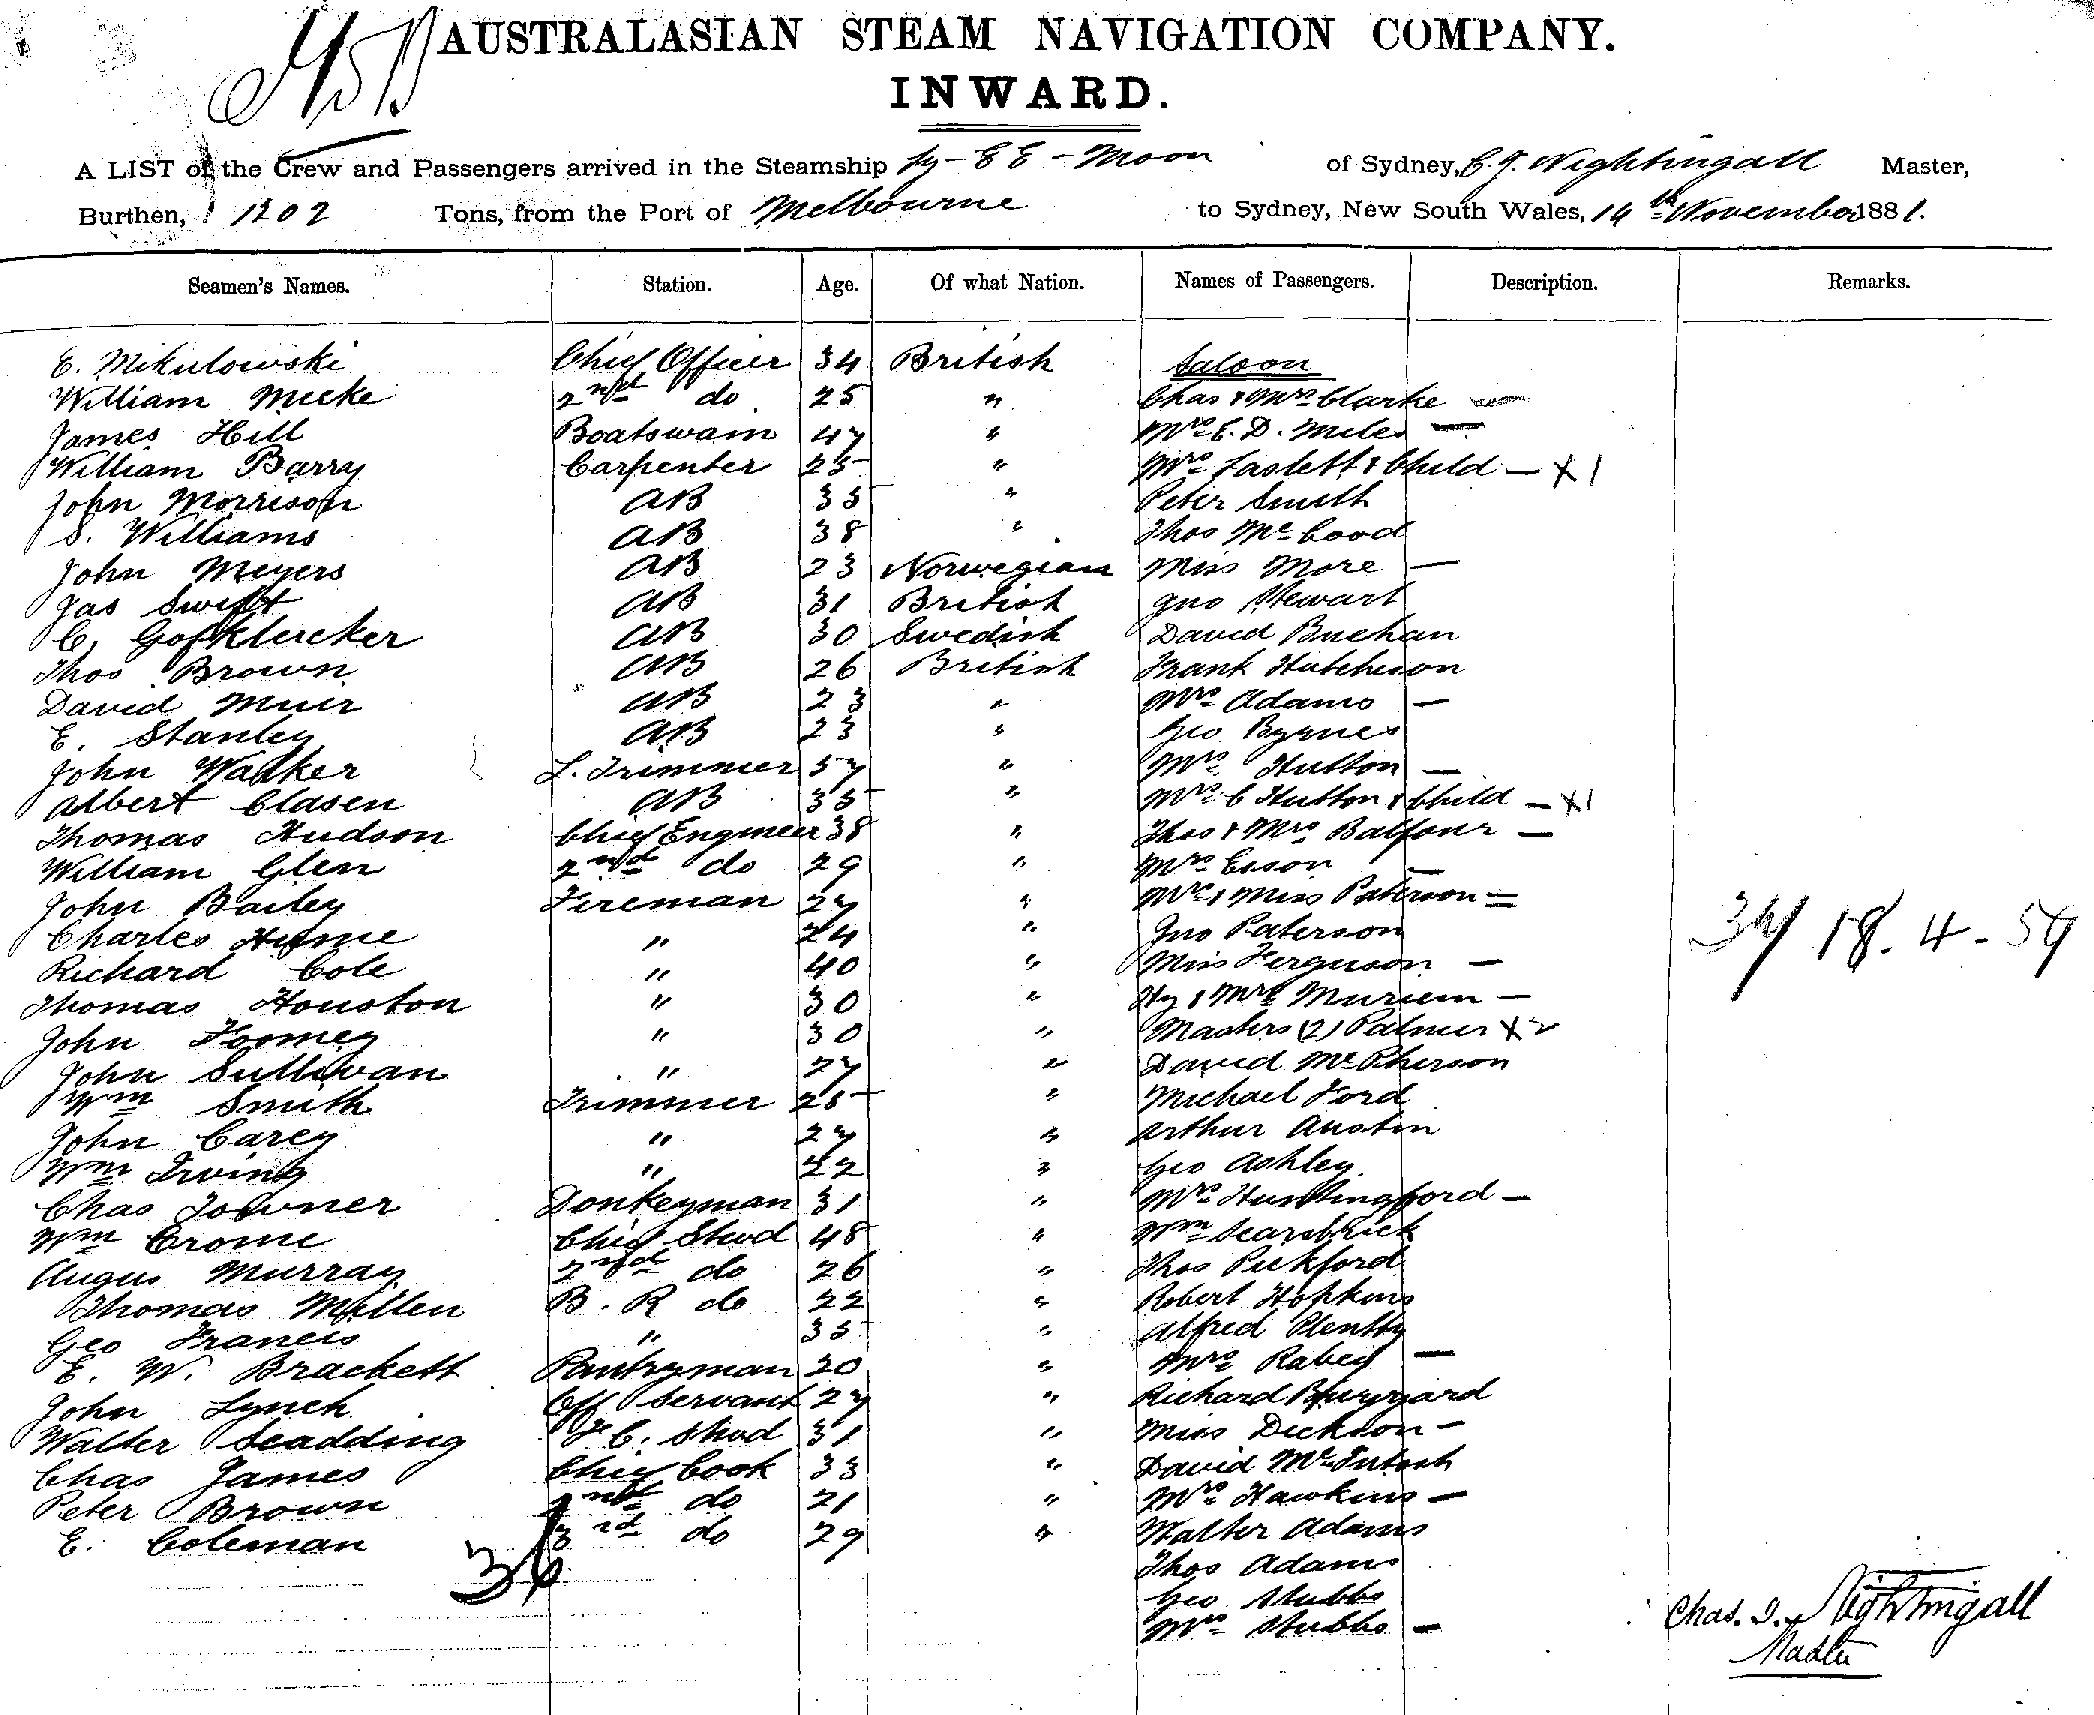 AUSTRALASIAN STEAM NAVIGATION COMPANY.
INWARD.
A LIST of the Crew and Passengers arrived in the Steamship Ly-EE-Moon of Sydney, C. J. Nightingall Master,
Burthen, 1202 Tons, from the Port of Melbourne to Sydney, New South Wales, 14th November 1881.
Seamen's Names. Station. Age. Of what Nation. Names of Passengers. Description. Remarks.
E. Mikulowski Chief Officer 34 British Saloon
William Meeke 2nd do 25 " Chas & Mrs Clarke —
James Hill Boatswain 47 " Mrs E. D. Miles —
William Barry Carpenter 25 " Mrs Laslett & Child — X 1
John Morrison AB 35 " Peter Smith
S. Williams AB 38 " Thos McCood
John Meyers AB 23 Norwegian Miss More —
Jas Swift AB 31 British Jno Stewart
C. AB 30 Swedish David Buchan
Thos Brown AB 26 British Frank Hutcheson
David Muir AB 23 " Mrs Adams —
E. Stanley AB 23 " Geo Byrnes
John Walker L. Trimmer 57 " Mrs Hutton —
Albert Clasen AB 35 " Mrs C Hutton & Child — X1
Thomas Hudson Chief Engineer 38 " Thos & Mrs Balfour —
William Glen 2nd do 29 " Mrs Esson —
John Bailey Fireman 27 " Mrs & Miss Paterson =
Charles Hume " 24 " Jno Paterson
Richard Cole " 40 " Miss Ferguson — 18. 4 - 54
Thomas Houston " 30 " Hy & Mrs —
John Toomey " 30 " Masters (2) Palmer X 2
John Sullivan " 27 " David McPherson
Wm Smith Trimmer 25 " Michael Ford
John Carey " 27 " Arthur Austin
Wm Irving " 22 " Geo Ashley
Chas Towner Donkeyman 31 " Mrs Huntingford —
Wm Crome Chief Stwd 48 " Wm Scarsbrick
Angus Murray 2nd do 26 " Thos Pickford
Thomas Mellen B. R do 22 " Robert Hopkins
Geo Francis " 35 " Alfred
E. W. Brackett Pantryman 20 " Mrs Rabey —
John Lynch Off Servant 27 " Richard
Walter Scadding F. C. Stwd 31 " Miss Dickson —
Chas James Chief Cook 33 " David McIntosh
Peter Brown 2nd do 21 " Mrs Hawkins —
E. Coleman 3rd do 29 " Walter Adams
36 Thos Adams
Geo Stubbs
Mrs Stubbs —
Chas. J. Nightingall
Master